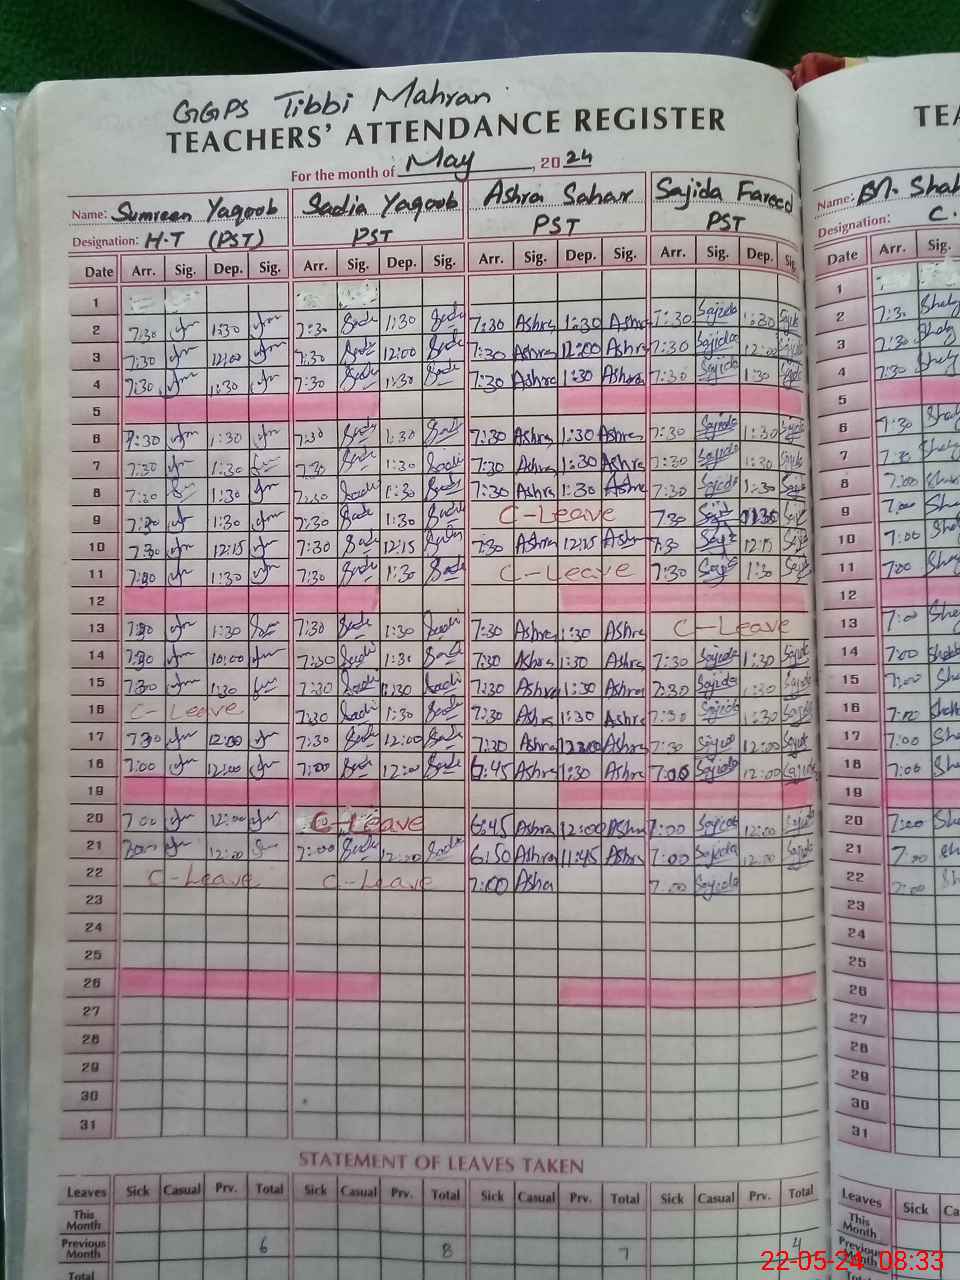 GGPS Tibbi Mahran
TEACHERS' ATTENDANCE REGISTER
For the month of May, 2024
Name: Sumreen Yaqoob Sadia Yaqoob Ashra Sahar Sajida Fareed
Designation: H.T (PST) PST PST PST
Date Arr. Sig. Dep. Sig. Arr. Sig. Dep. Sig. Arr. Sig. Dep. Sig. Arr. Sig. Dep. Sig.
1
2 7:30 1:30 7:30 Sadi 1:30 Sadi 7:30 Ashra 1:30 Ashra 7:30 Sajida 1:30 Sajida
3 7:30 12:00 7:30 Sadi 12:00 Sadi 7:30 Ashra 12:00 Ashra 7:30 Sajida 12:00 Sajida
4 7:30 1:30 7:30 Sadi 1:30 Sadi 7:30 Ashra 1:30 Ashra 7:30 Sajida 1:30 Sajida
5
6 7:30 1:30 7:30 Sadi 1:30 Sadi 7:30 Ashra 1:30 Ashra 7:30 Sajida 1:30 Sajida
7 7:30 1:30 7:30 Sadi 1:30 Sadi 7:30 Ashra 1:30 Ashra 7:30 Sajida 1:30 Sajida
8 7:30 1:30 7:30 Sadi 1:30 Sadi 7:30 Ashra 1:30 Ashra 7:30 Sajida 1:30 Sajida
9 7:30 1:30 7:30 Sadi 1:30 Sadi C-Leave 7:30 1:30
10 7:30 12:15 7:30 Sadi 12:15 Sadi 7:30 Ashra 12:15 Ashra 7:30 12:15
11 7:30 1:30 7:30 Sadi 1:30 Sadi C-Leave 7:30 1:30
12
13 7:30 1:30 7:30 Sadi 1:30 Sadi 7:30 Ashra 1:30 Ashra C-Leave
14 7:30 10:00 7:30 Sadi 1:30 Sadi 7:30 Ashra 1:30 Ashra 7:30 Sajida 1:30 Sajida
15 7:30 1:30 7:30 Sadi 1:30 Sadi 7:30 Ashra 1:30 Ashra 7:30 Sajida 1:30 Sajida
16 C-Leave 7:30 Sadi 1:30 Sadi 7:30 Ashra 1:30 Ashra 7:30 Sajida 1:30 Sajida
17 7:30 12:00 7:30 Sadi 12:00 Sadi 7:30 Ashra 12:00 Ashra 7:30 Sajida 12:00 Sajida
18 7:00 12:00 7:00 Sadi 12:00 Sadi 6:45 Ashra 1:30 Ashra 7:00 Sajida 12:00 Sajida
19
20 7:00 12:00 C-Leave 6:45 Ashra 12:00 Ashra 7:00 Sajida 12:00 Sajida
21 7:00 12:00 7:00 Sadi 12:00 Sadi 6:50 Ashra 11:45 Ashra 7:00 Sajida 12:00 Sajida
22 C-Leave C-Leave 7:00 Asha 7:00 Sajida
23
24
25
26
27
28
29
30
31
STATEMENT OF LEAVES TAKEN
Leaves Sick Casual Prv. Total Sick Casual Prv. Total Sick Casual Prv. Total Sick Casual Prv. Total
This Month
Previous Month 6 8 7 4
Total
TEA
Name: M. Shah
Designation: C.
Date Arr. Sig.
1
2 7:30
3 7:30
4 7:30
5
6 7:30
7 7:30
8 7:00
9 7:00
10 7:00
11 7:00
12
13 7:00
14 7:00
15 7:00
16 7:00
17 7:00
18 7:00
19
20 7:00
21 7:00
22 7:00
23
24
25
26
27
28
29
30
31
Leaves Sick Ca
This Month
Previous Month
Total
22-05-24 08:33